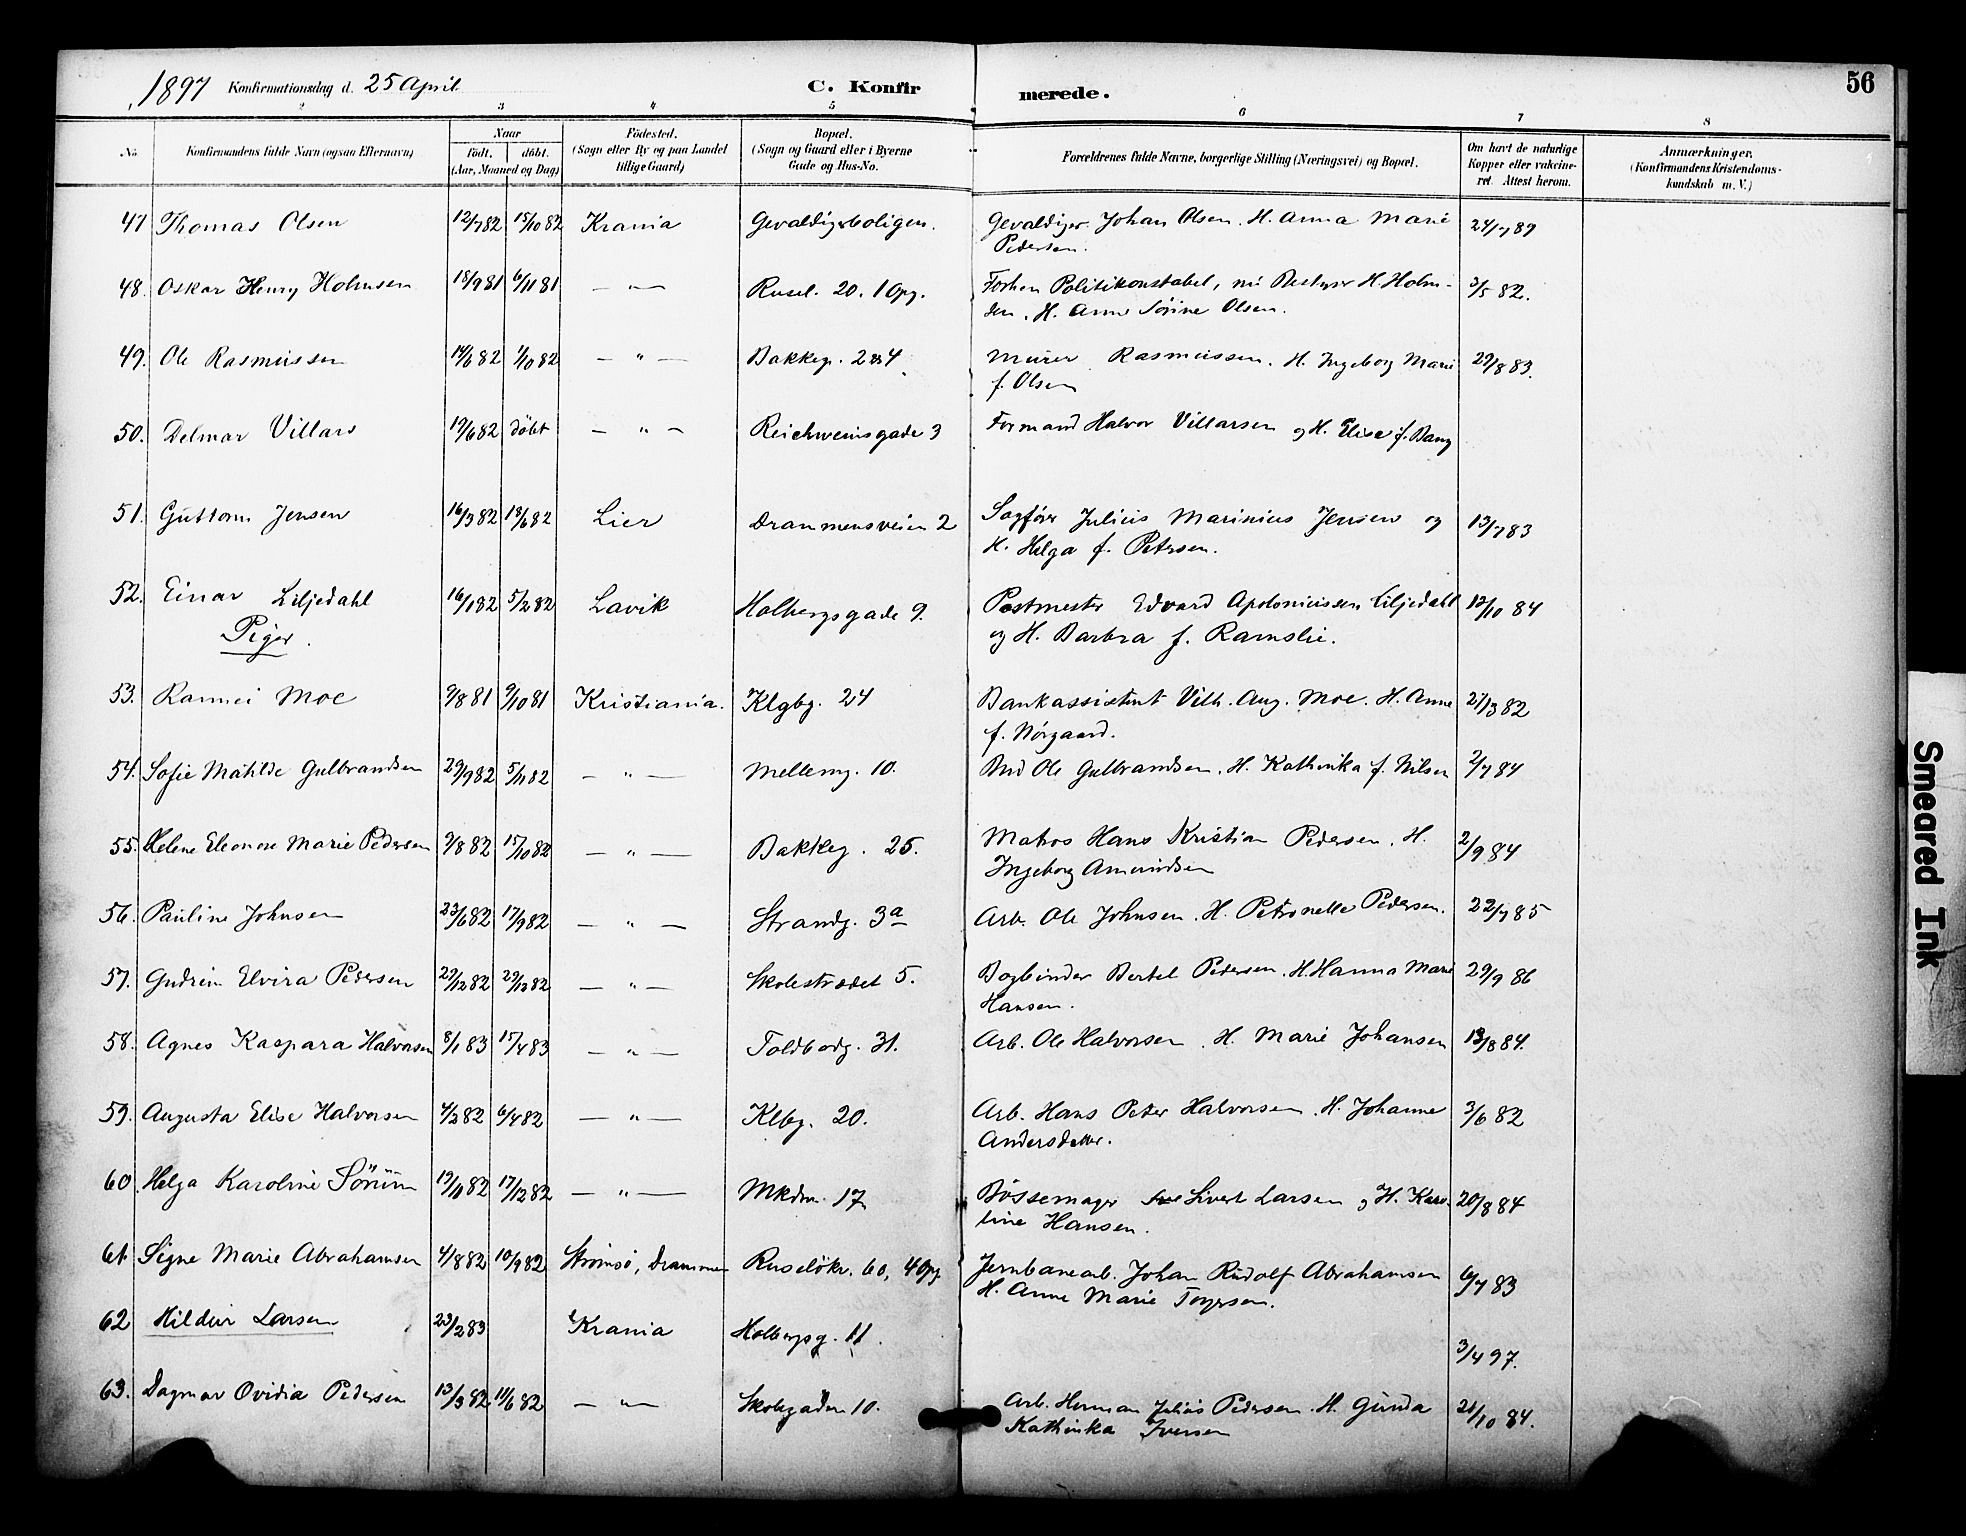 1897 Konfirmationsdag d. 25 April C. Konfirmerede. 56
1 2 3 4 5 6 7 8
No. Konfirmandens fulde Navn (ogsaa Efternavn) Naar Födt, döbt. (Aar, Maaned og Dag) Födested. (Sogn eller By og paa Landet tillige Gaard) Bopæl. (Sogn og Gaard eller i Byerne Gade og Hus-No. Forældrenes fulde Navne, borgerlige Stilling (Næringsvei) og Bopæl. Om havt de naturlige Kopper eller vakcineret. Attest herom. Anmærkninger. (Konfirmandens Kristendomskundskab m. V.)
47 Thomas Olsen 12/7 82 15/10 82 Krania Gevaldigerboligen. Gevaldiger Johan Olsen. H. Anna Marie 24/7 89
Pedersen.
48. Oskar Henry Holmsen 18/9 81 6/11 81 — " — Rusel. 20. 1 Opg. Forhen Politikonstabel, nu Bestyrer H. Holm- 3/5 82.
sen. H. Anne Sörine Olsen.
49. Ole Rasmussen 14/6 82 1/10 82 — " — Bakkeg. 24 Murer Rasmussen. H. Ingeborg Marie 29/8 83.
f. Olsen
50. Delmar Villars 19/6 82 döbt — " — Reichweinsgade 3 Formand Halvor Villarsen og H. Elise f. Bang
51. Guttorm Jensen 16/3 82 18/6 82 Lier Drammensveien 2 Sagförer Julius Marinius Jensen og 13/7 83
H. Helga f. Petersen.
52. Einar Liljedahl 16/1 82 5/2 82 Lavik Holbergsgade 9. Postmester Edvard Apoloniussen Liljedahl 12/10 84
og H. Barbra f. Ramslie.
Piger.
53. Rannei Moe 9/8 81 9/10 81 Kristiania. Klgbg. 24 Bankassistent Vilh. Aug. Moe. H. Anne 27/3 82
f. Nörgaard.
54. Sofie Mathilde Gulbrandsen 29/9 82 5/11 82 — " — Mellemg. 10. Bud Ole Gulbrandsen. H. Kathinka f. Nilsen 2/7 84
55. Helene Eleonore Marie Pedersen 9/8 82 15/10 82 — " — Bakkeg. 25. Matros Hans Kristian Pedersen. H. 2/9 84
Ingeborg Amundsen
56. Pauline Johnsen 23/6 82 17/9 82 — " — Strandg. 3a Arb. Ole Johnsen. H. Petronelle Pedersen. 22/7 85
57. Gudrun Elvira Pedersen 29/12 82 29/12 82 — " — Skolestrædet 5. Bogbinder Bertel Pedersen. H. Hanna Marie 29/9 86
Hansen.
58. Agnes Kaspara Halvorsen 8/1 83 15/4 83 — " — Toldbodg. 31. Arb. Ole Halvorsen. H. Marie Johansen 13/8 84.
59. Augusta Elise Halvorsen 4/2 82 6/4 82 — " — Klbg. 20. Arb. Hans Peter Halvorsen. H. Johanne 3/6 82
Andersdatter.
60 Helga Karoline Sörum 19/11 82 17/12 82 — " — Mkdm. 17 Bössemager Sivert Larsen og H. Karo- 20/8 84
line Hansen.
61. Signe Marie Abrahamsen 4/8 82 10/9 82 Strömsö, Drammen Ruselökv. 60, 4 Opg. Jernbanearb. Johan Rudolf Abrahamsen 6/7 83
H. Anne Marie Torgersen.
62 Hildur Larsen 23/2 83 Krania Holbergsg. 11. 3/4 97.
63. Dagmar Ovidia Pedersen 13/3 82 11/6 82 — " — Skolegaden 10. Arb. Herman Julius Pedersen. H. Gunda 21/10 84.
Kathinka Iversen
Smeared Ink